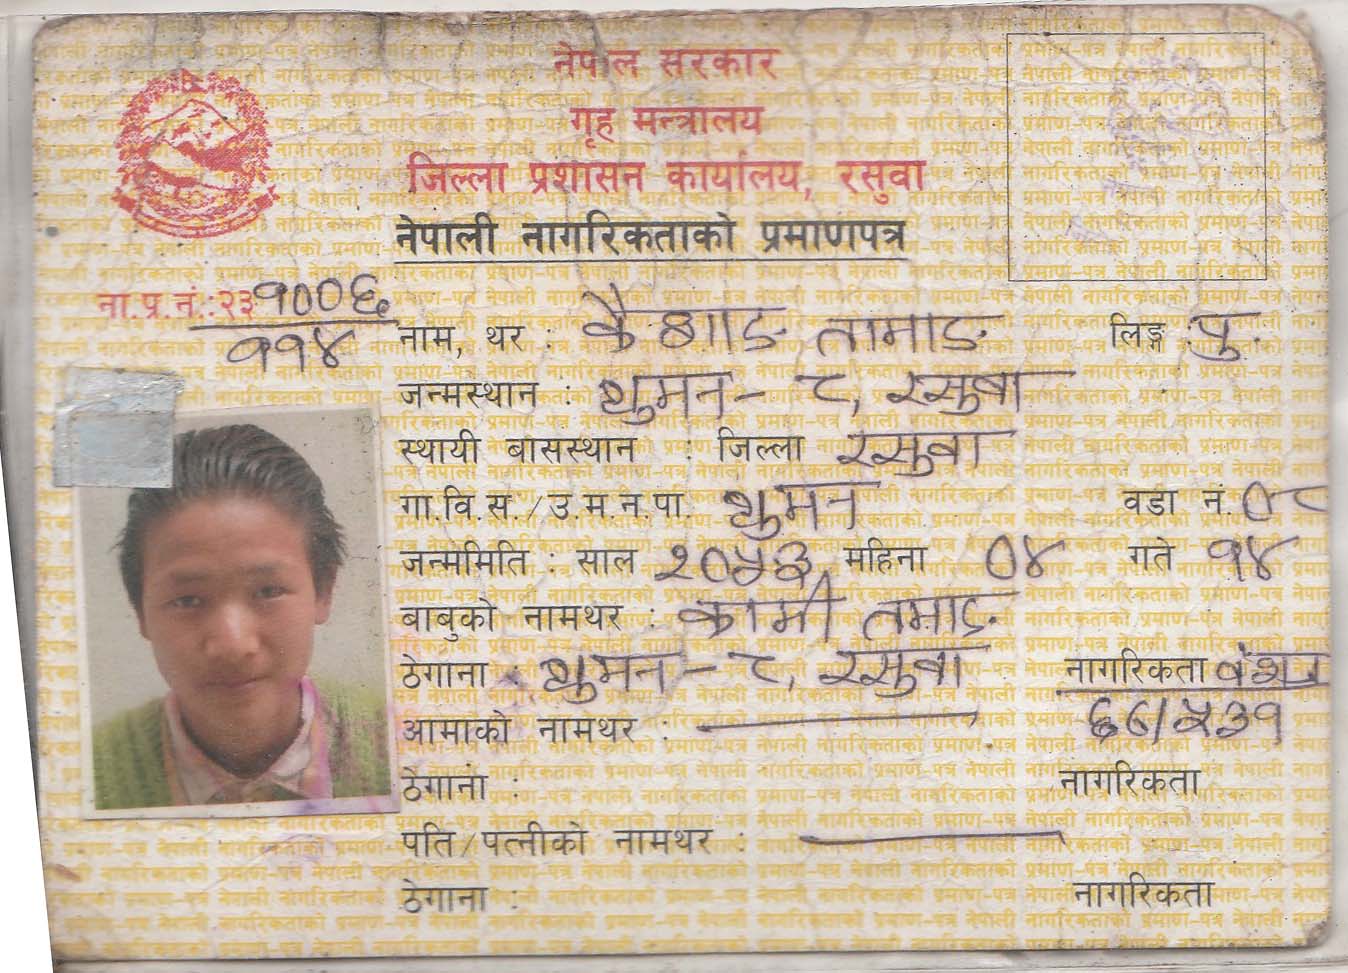 नेपाल सरकार
गृह मन्त्रालय
जिल्ला प्रशासन कार्यालय, रसुवा
नेपाली नागरिकताको प्रमाणपत्र
ना.प्र.नं.:२३१००६
११४
नाम, थर : तामाङ लिङ्ग : पु.
जन्मस्थान : थुमन - ८, रसुवा
स्थायी बासस्थान : जिल्ला रसुवा
गा.वि.स./उ.म.न.पा. थुमन वडा नं. ०८
जन्ममिति : साल २०५३ महिना ०४ गते १४
बाबुको नामथर : कामी तमाङ
ठेगाना : थुमन - ८, रसुवा नागरिकता वंशज
आमाको नामथर : ६८/५३१
ठेगाना : नागरिकता
पति/पत्नीको नामथर :
ठेगाना : नागरिकता